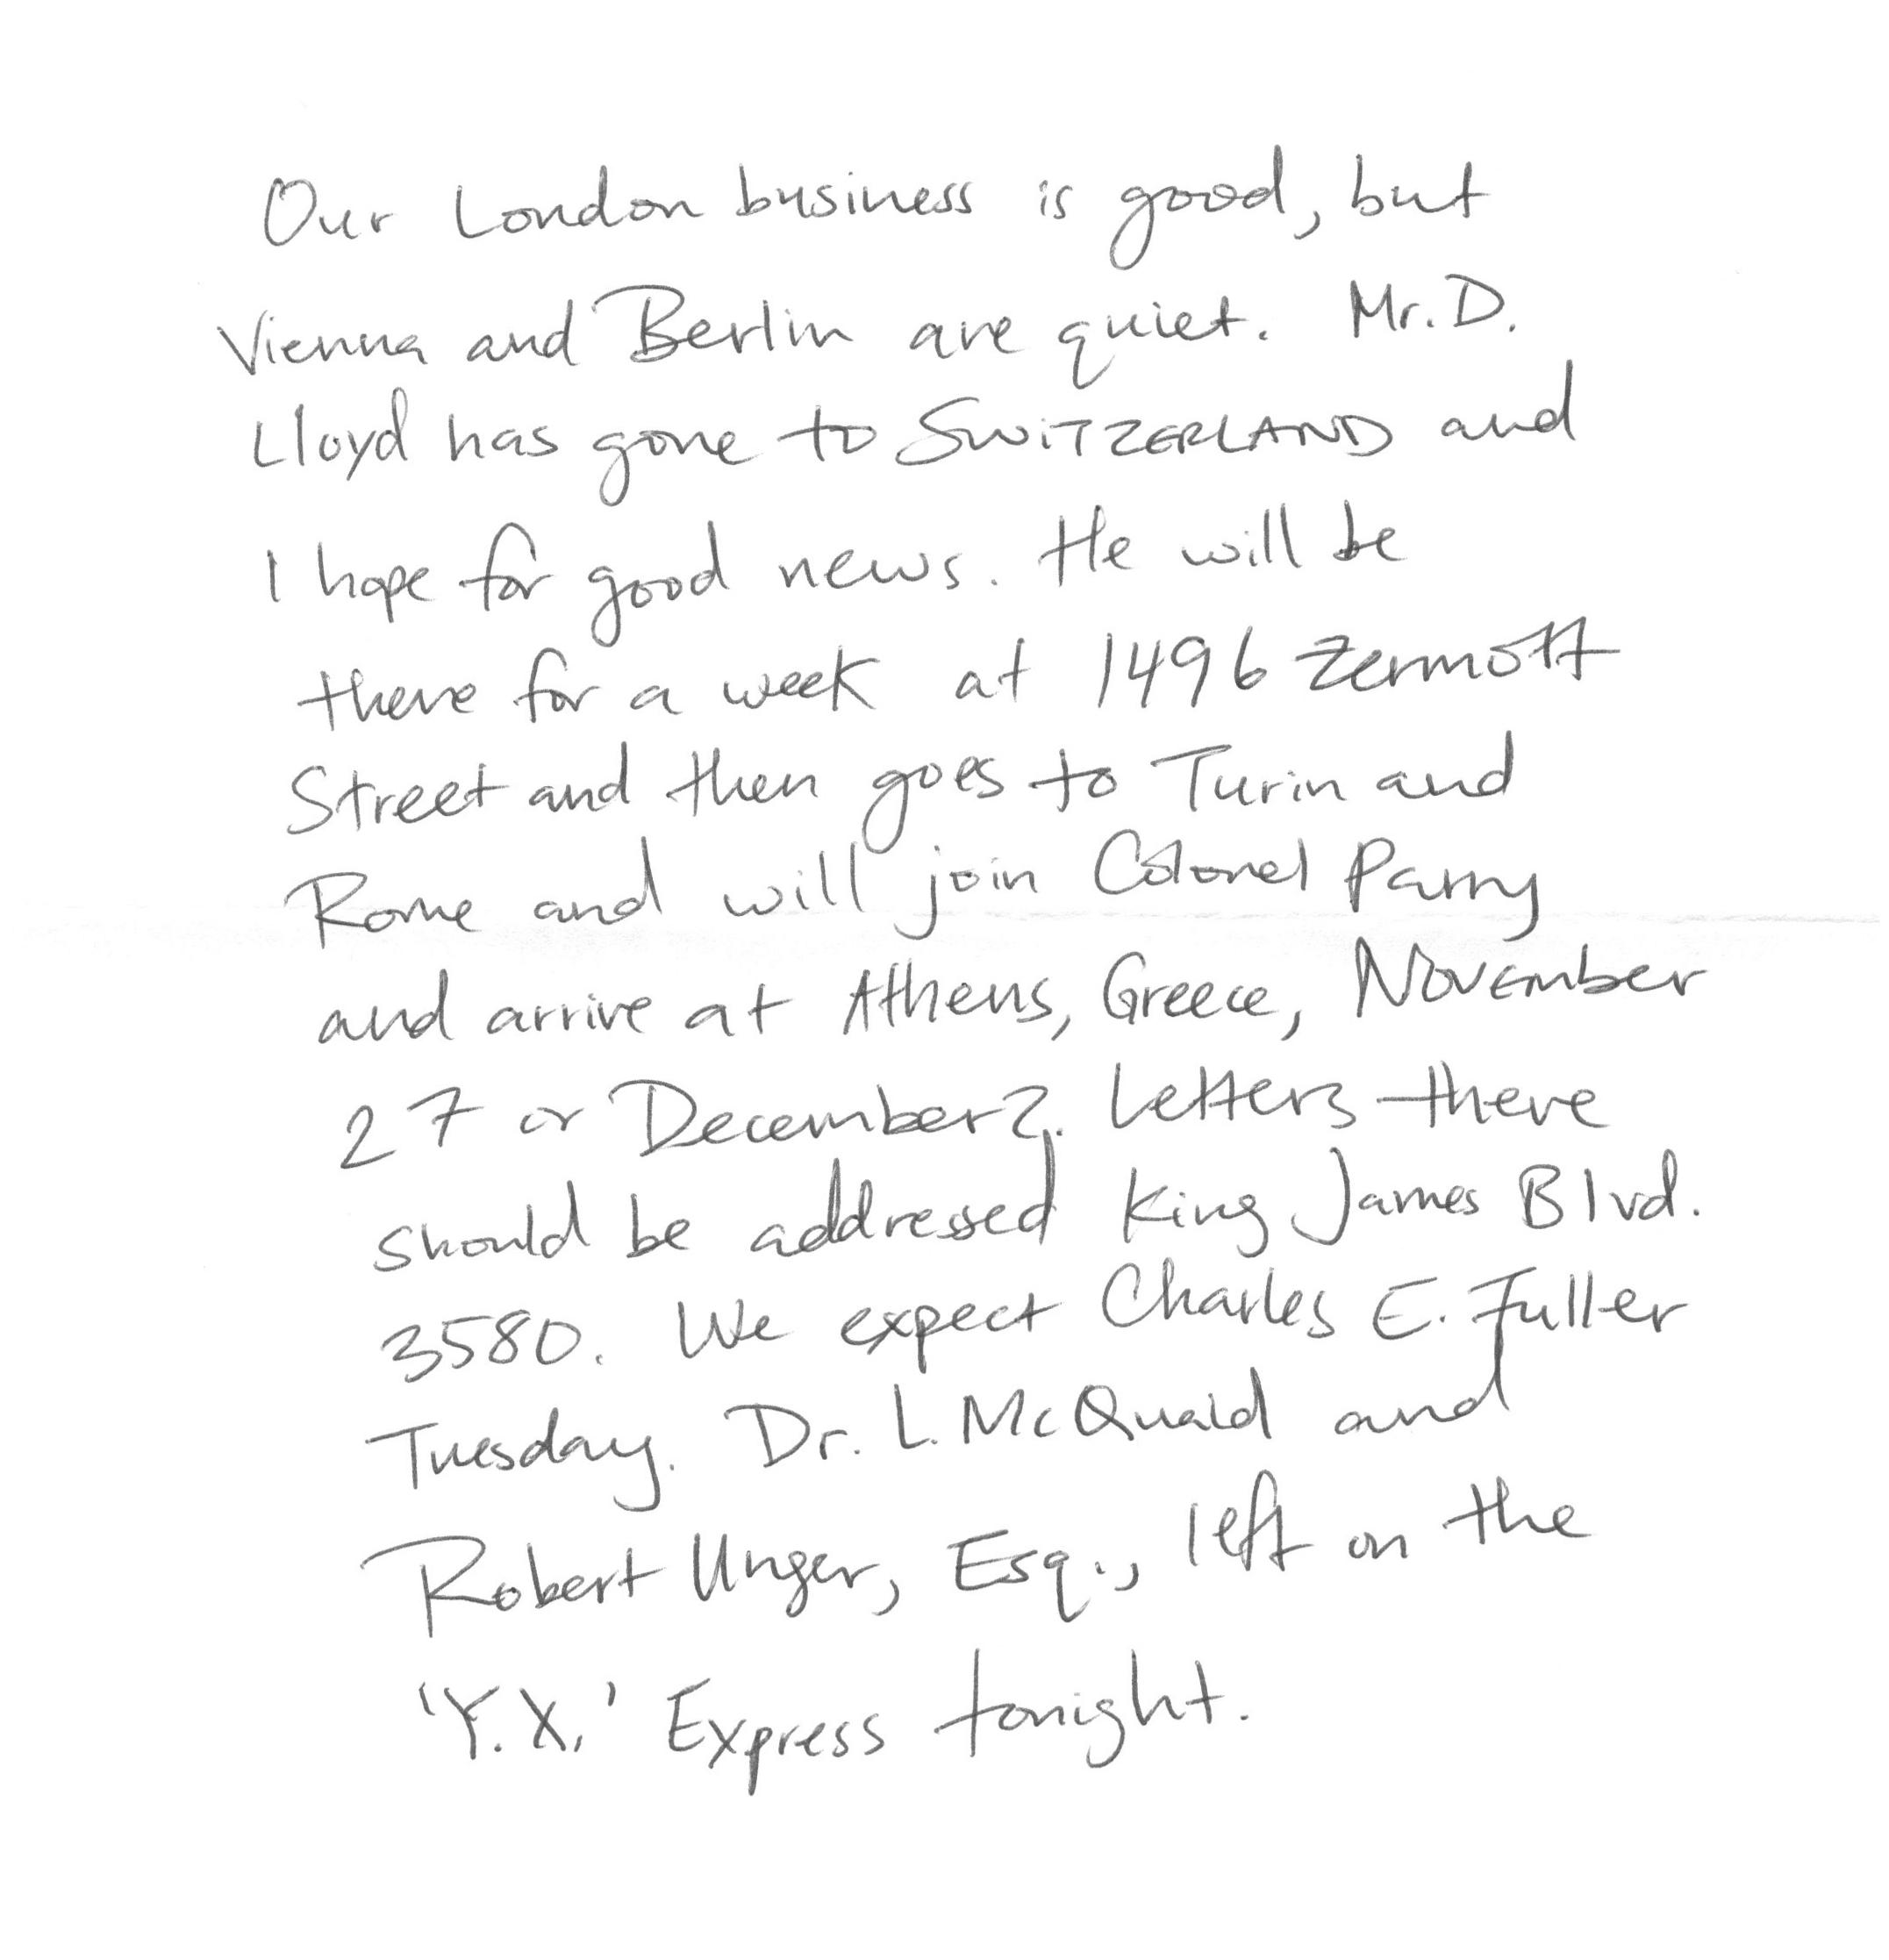 Our London business is good, but
Vienna and Berlin are quiet. Mr. D.
Lloyd has gone to SWITZERLAND and
I hope for good news. He will be
there for a week at 1496 Zermott
Street and then goes to Turin and
Rome and will join Colonel Parry
and arrive at Athens, Greece, November
27 or December 2. Letters there
should be addressed King James Blvd.
3580. We expect Charles E. Fuller
Tuesday. Dr. L. McQuaid and
Robert Unger, Esq., left on the
'Y.X.' Express tonight.